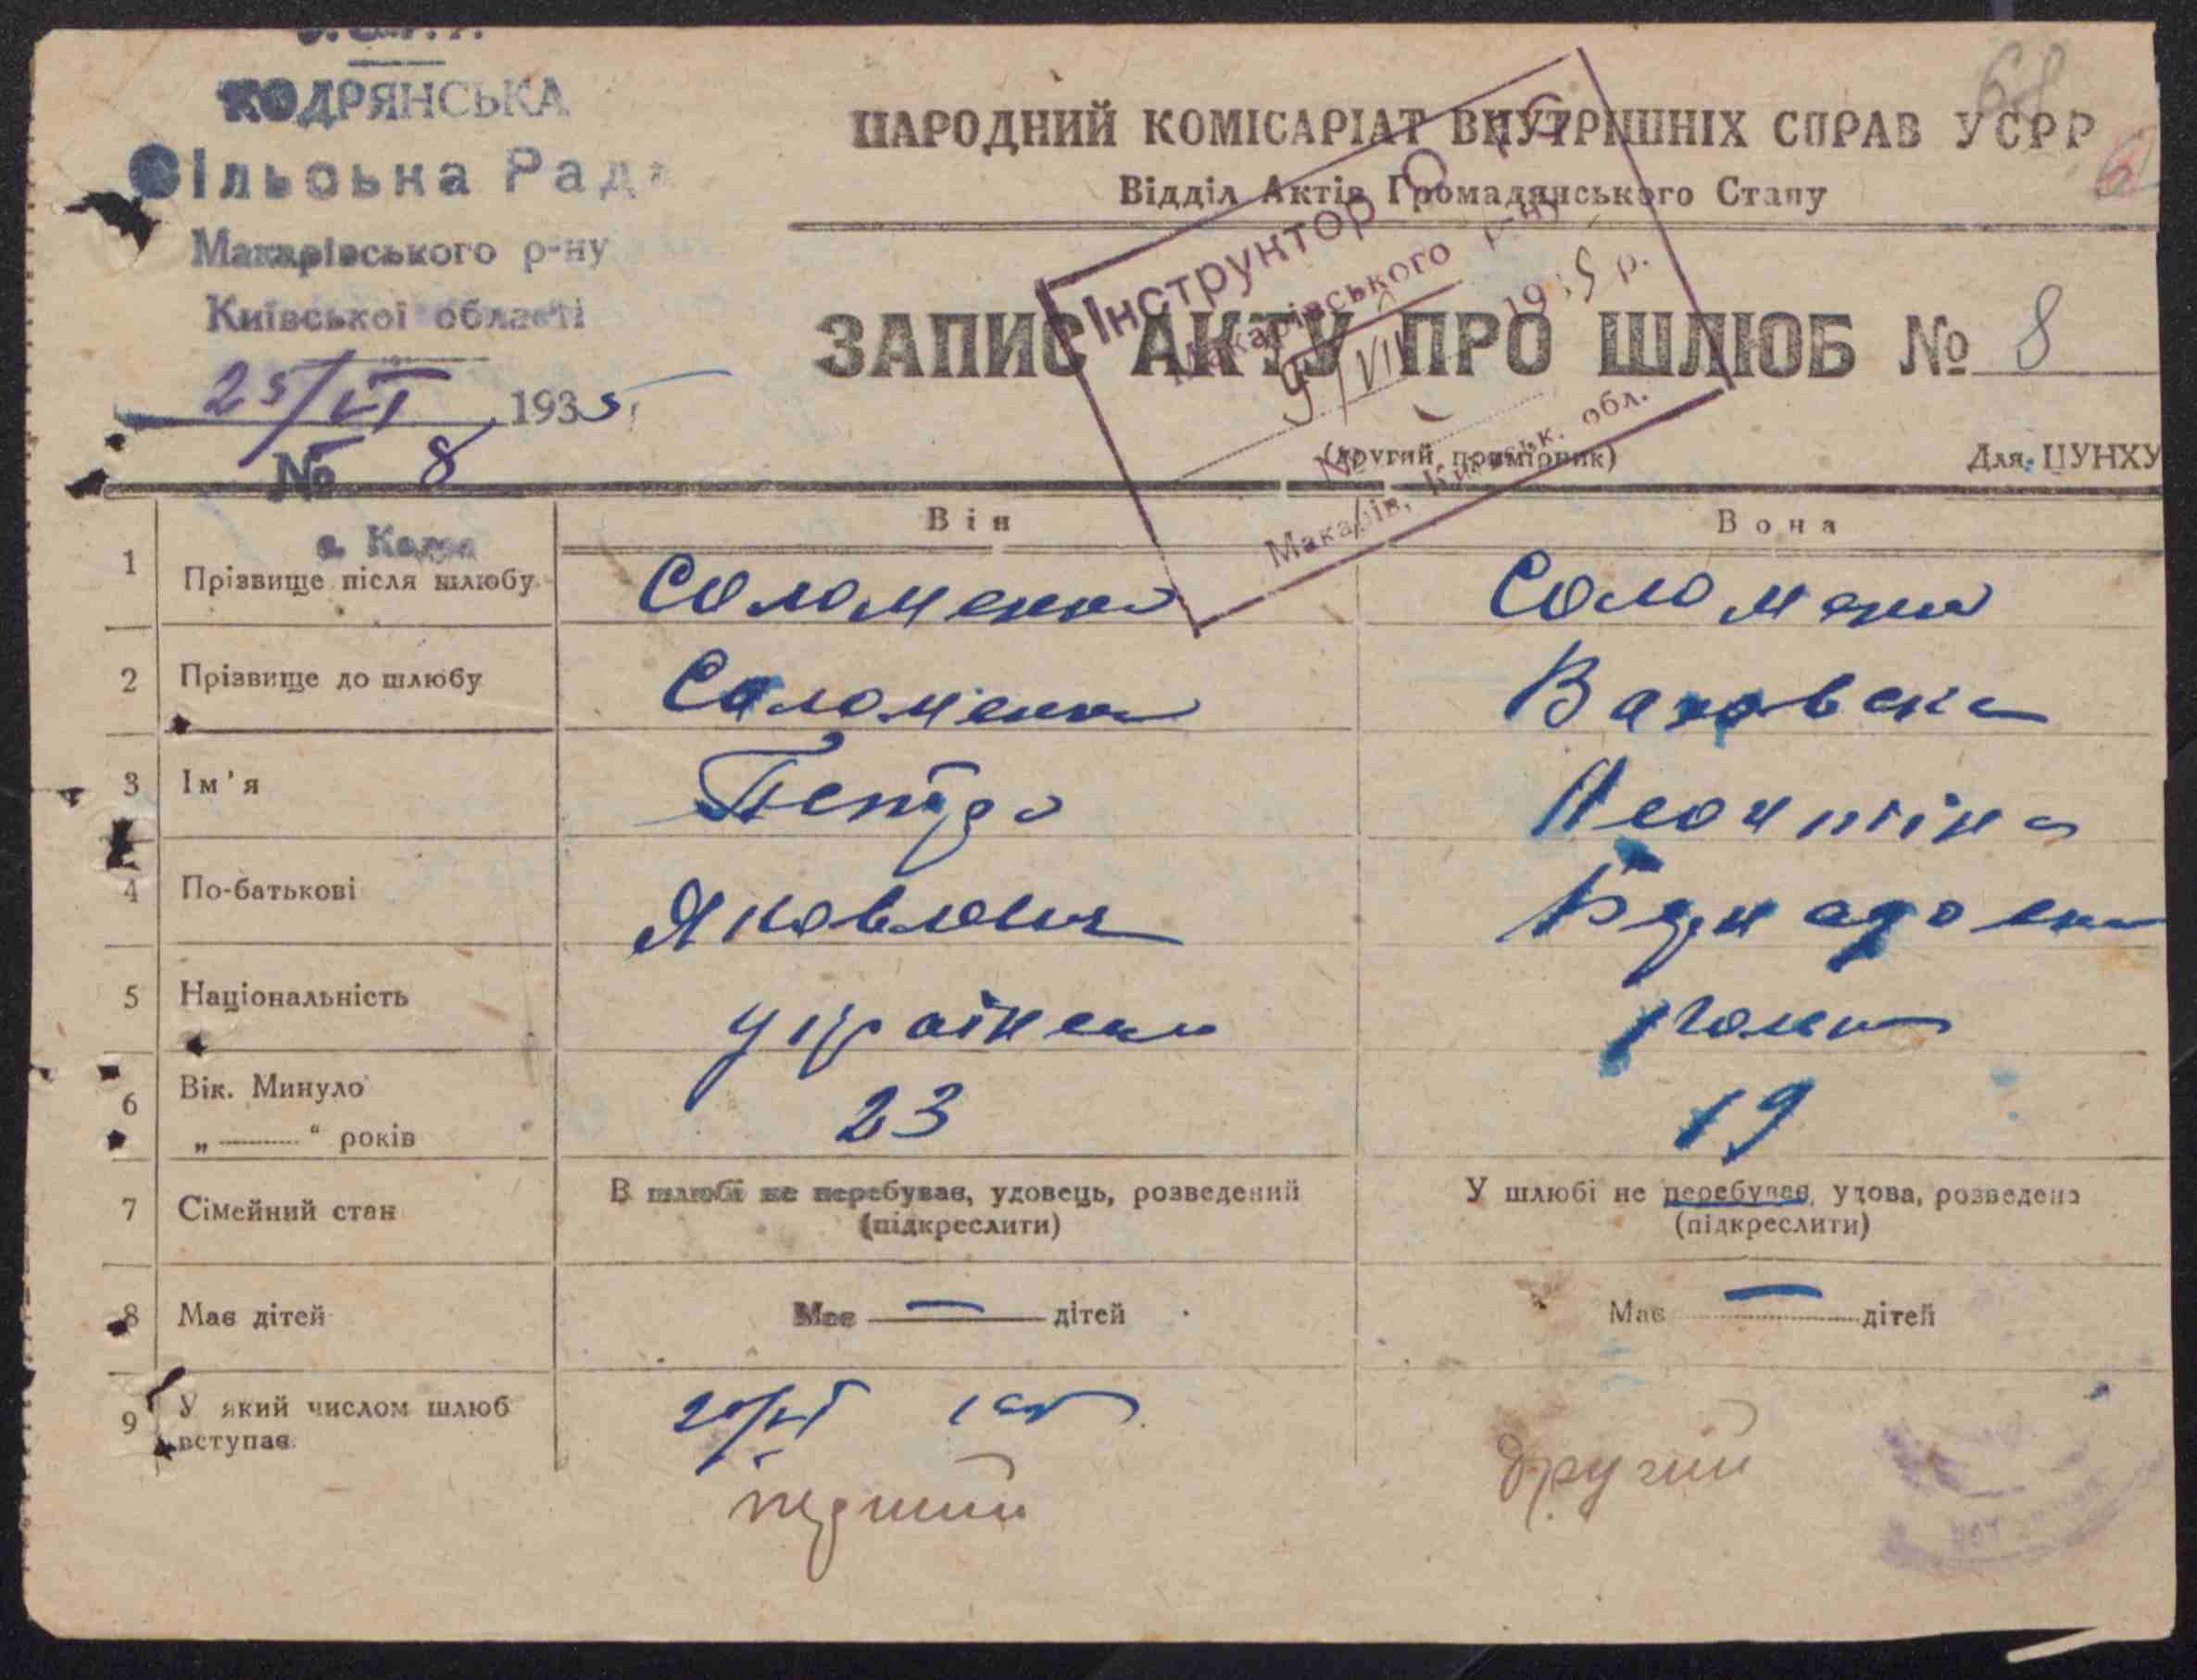 КОДРЯНСЬКА
Сільська Рада
Макарівського р-ну
Київської області
25/VI 1935
№ 8
68
НАРОДНИЙ КОМІСАРІАТ ВНУТРІШНІХ СПРАВ УСРР
Відділ Актів Громадянського Стану
ЗАПИС АКТУ ПРО ШЛЮБ № 8
(другий примірник)
Для ЦУНХУ
Інструктор О А С
Макарівського р-ну
9/VII 1935 р.
№
Макарів, Київськ. обл.
Він
Вона
1 Прізвище після шлюбу Соломенко Соломенко
2 Прізвище до шлюбу Соломенко Ваховска
3 Ім'я Петро
4 По-батькові Яковлович
5 Національність українец
6 Вік. Минуло
„ —— “ років 23 19
7 Сімейний стан В шлюбі не перебував, удовець, розведений У шлюбі не перебував, удова, розведена
(підкреслити) (підкреслити)
8 Має дітей Має — дітей Має — дітей
9 У який числом шлюб
вступає
перший другий